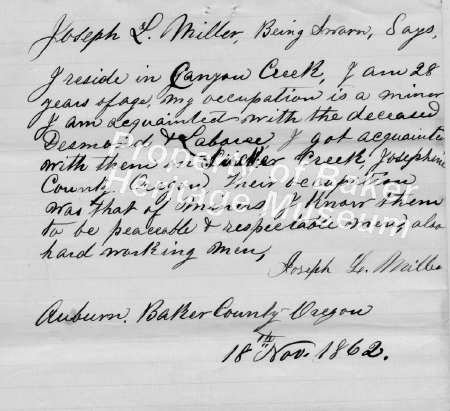 Joseph L. Miller, Being Sworn, Says,
I reside in Canyon Creek, I am 28
years of age, my occupation is a miner
I am acquainted with the deceased
Desmond & Labore, I got acquainted
with them in Creek, Josephine
County Oregon Their occupation
was that of miners I know them
to be peaceable & respectable men, also
hard working men,
Joseph L. Miller
Auburn. Baker County Oregon
18th Nov. 1862.
Property of Baker
Heritage Museum